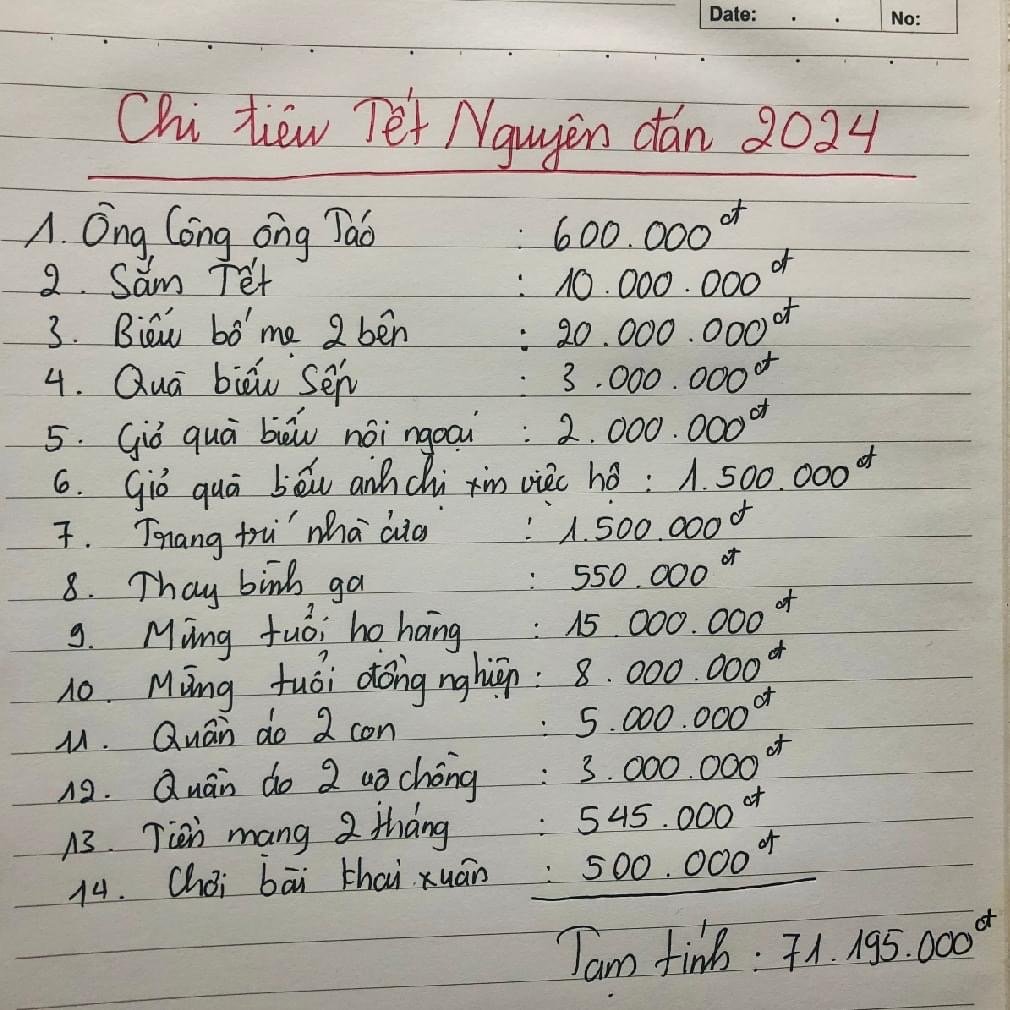 Date: . . No:
Chi tiêu Tết Nguyên đán 2024
1. Ông Công ông Táo : 600.000đ
2. Sắm Tết : 10.000.000đ
3. Biếu bố mẹ 2 bên : 20.000.000đ
4. Quà biếu Sếp : 3.000.000đ
5. Giỏ quà biếu nội ngoại : 2.000.000đ
6. Giỏ quà biếu anh chị xin việc hộ : 1.500.000đ
7. Trang trí nhà cửa : 1.500.000đ
8. Thay bình ga : 550.000đ
9. Mừng tuổi họ hàng : 15.000.000đ
10. Mừng tuổi đồng nghiệp : 8.000.000đ
11. Quần áo 2 con : 5.000.000đ
12. Quần áo 2 vợ chồng : 3.000.000đ
13. Tiền mạng 2 tháng : 545.000đ
14. Chơi bài khai xuân : 500.000đ
Tạm tính : 71.195.000đ